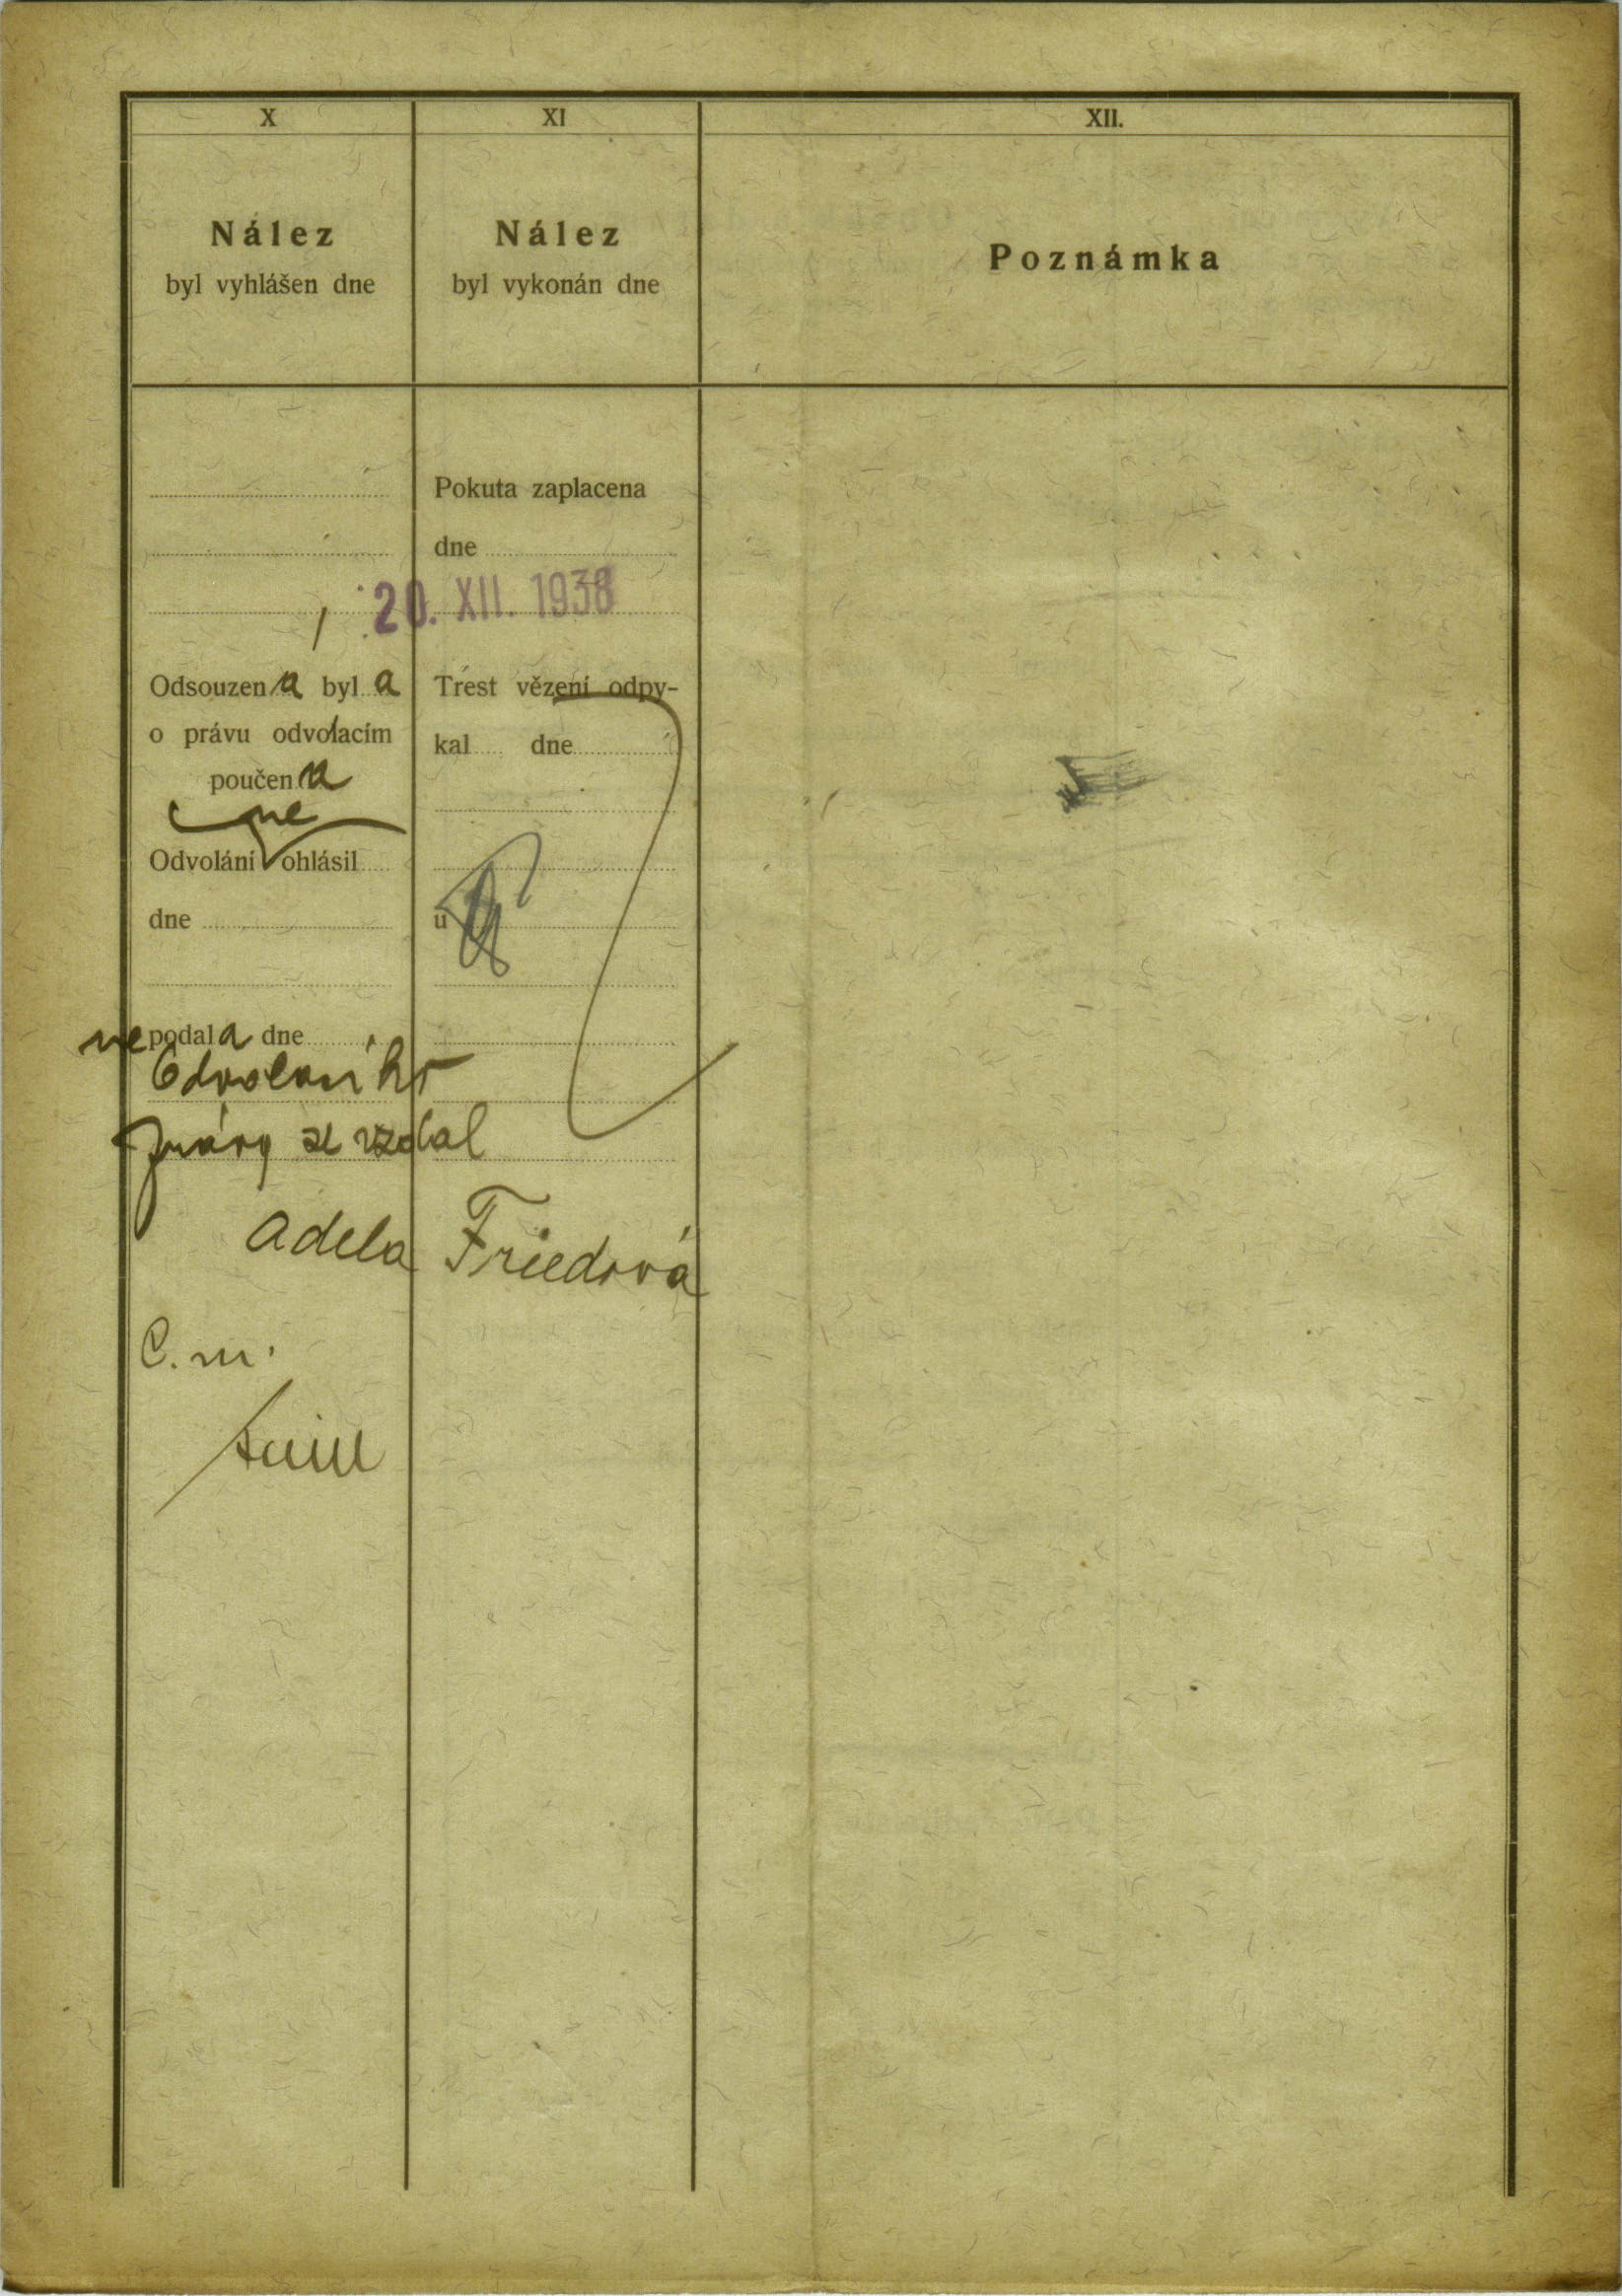 X
Nález
byl vyhlášen dne
Odsouzena byla
o právu odvolacím
poučena
ne
Odvolání ohlásil
dne
nepodala dne
Odvolání
práva se vzdal
XI
Nález
byl vykonán dne
Pokuta zaplacena
dne
20. XII. 1938
Trest vězení odpy-
kal dne
u
Adela Friedová
C. m.
XII.
Poznámka